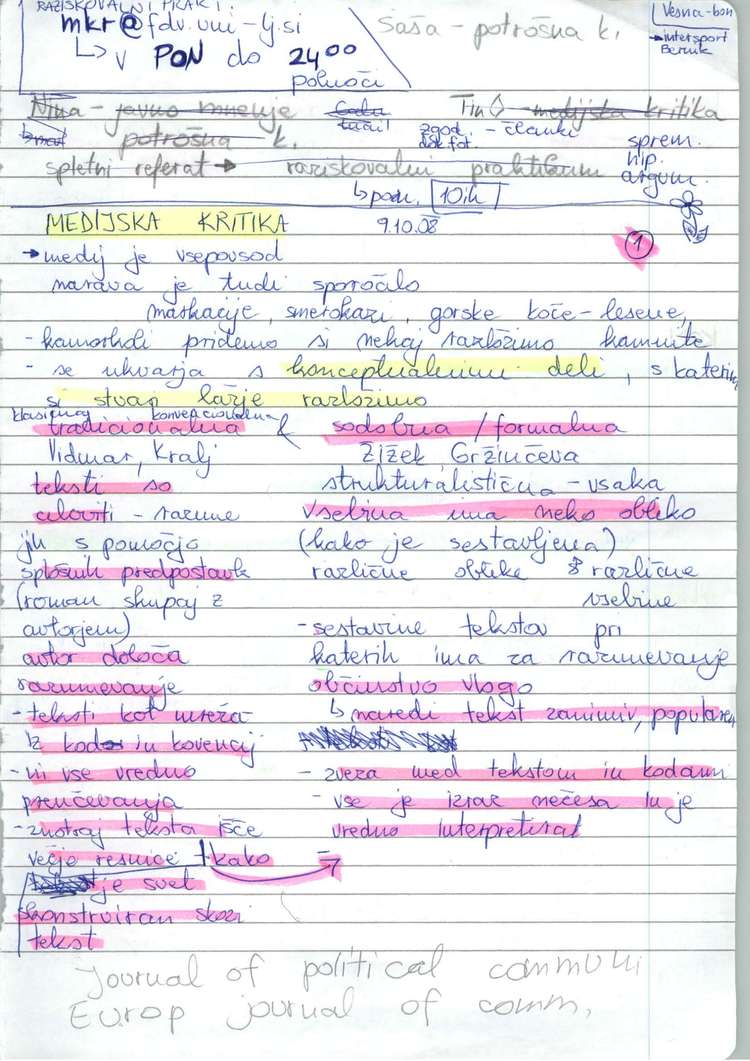 RAZISKOVALNI PRAKT.
mkr@fdv.uni-lj.si
↳ v PON do 24⁰⁰
polnoči
Saša - potrošna k.
Vesna-bon
→intersport
Bernik
Nina - javno mnenje
potrošna k.
Tin - medijska kritika
zgod. - članki
dok. fot.
sprem.
hip.
argum.
spletni referat → raziskovalni praktikum
↳ pon. 10ih
MEDIJSKA KRITIKA 9.10.08
1
→ medij je vsepovsod
narava je tudi sporočilo
markacije, smerokazi, gorske koče - lesene,
- kamorkoli pridemo si nekaj razložimo kamnite
- se ukvarja s konceptualnimi deli, s katerim
si stvari lažje razložimo
klasična konvencionalna
tradicionalna & sodobna / formalna
Vidmar, Kralj Žižek Gržinčeva
teksti so strukturalistična - vsaka
celoviti - razume vsebina ima neko obliko
jih s pomočjo (kako je sestavljena)
splošnih predpostavk različne oblike & različne
(roman skupaj z vsebine
avtorjem) - sestavine tekstov pri
avtor določa katerih ima za razumevanje
razumevanje občinstvo vlogo
- teksti kot mreža ↳ naredi tekst zanimiv, popularen
iz kodov in kovencij
- ni vse vredno - zveza med tekstom in kodami
preučevanja - vse je izraz nečesa in je
- znotraj teksta išče vredno interpretirat
večje resnice + kako -
je svet
skonstruiran skozi
tekst
Journal of political communi
Europ journal of comm.